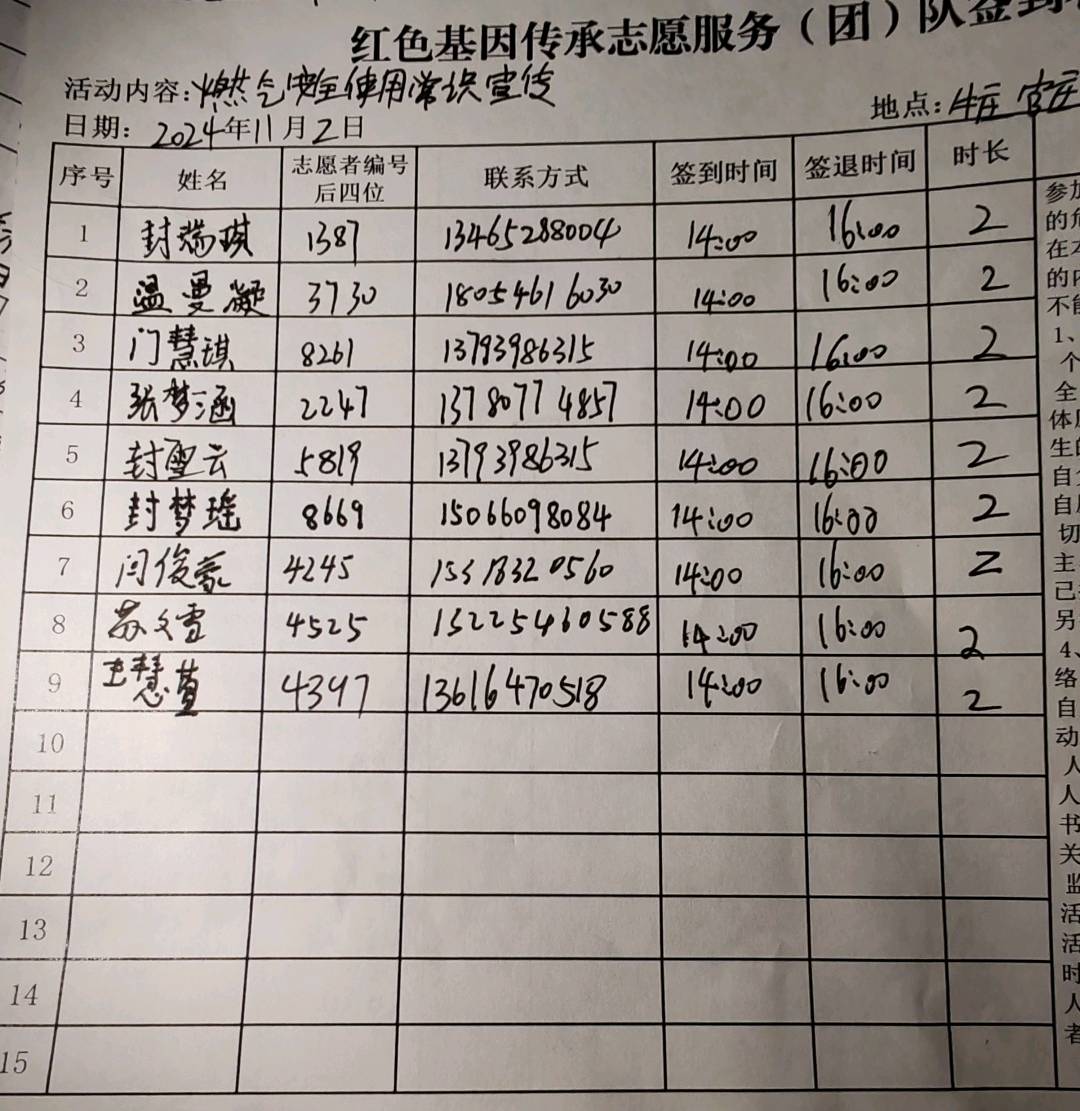 红色基因传承志愿服务（团）队签到
活动内容:燃气安全使用常识宣传
地点:牛庄
日期: 2024年11月2日
序号 姓名 志愿者编号后四位 联系方式 签到时间 签退时间 时长
1 封瑞琪 1387 13465288004 14:00 16:00 2
2 温曼凝 3730 18054616030 14:00 16:00 2
3 门慧琪 8261 13793986315 14:00 16:00 2
4 张梦涵 2247 13780774857 14:00 16:00 2
5 封雪云 5819 13793986315 14:00 16:00 2
6 封梦瑶 8669 15066098084 14:00 16:00 2
7 闫俊豪 4245 14:00 16:00 2
8 苏文雪 4525 14:00 16:00 2
9 王慧萱 4397 13616470518 14:00 16:00 2
10
11
12
13
14
15
参加
的危
在本
的内
不能
1、
个
全
体
生的
自
自
切
主
已
另
4、
络
自
动
人
人
书
关
监
活
活
时
人
者